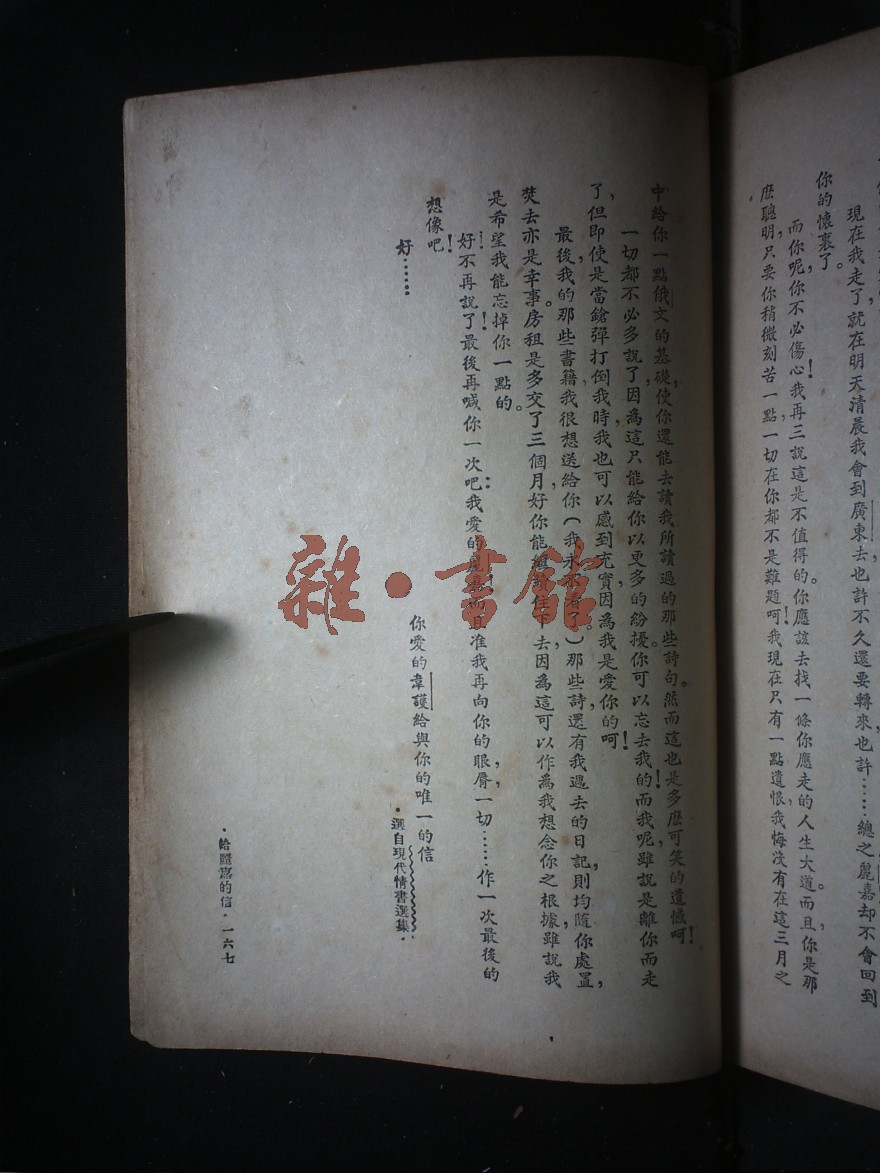 現在我走了，就在明天清晨，我會到廣東去，也許不久還要轉來，也許……總之，麗嘉却不會回到
你的懷裏了。
而你呢，你不必傷心！我再三說這是不值得的。你應該去找一條你應走的人生大道。而且你是那
麽聰明，只要你稍微刻苦一點，一切在你都不是難題呵！我現在只有一點遺恨，我悔沒有在這三月之
中給你一點俄文的基礎，使你還能去讀我所讀過的那些詩句。然而這也是多麽可笑的遺憾呵！
一切都不必多說了，因爲這只能給你以更多的紛擾。你可以忘去我的！而我呢，雖說是離你而走
了，但即使是當鎗彈打倒我時，我也可以感到充實，因爲我是愛你的呵！
最後，我的那些書籍，我很想送給你（我永不看了。）那些詩，還有我過去的日記，則均隨你處置，
焚去亦是幸事。房租是多交了三個月，好你能繼續住下去，因爲這可以作爲我想念你之根據，雖說我
是希望我能忘掉你一點的。
好！不再說了！最後再喊你一次吧：我愛的麗嘉！而且准我再向你的眼，唇，一切……作一次最後的
想像吧！
好……
你愛的韋護給與你的唯一的信
·選自現代情書選集·
·給麗嘉的信·一六七
雜·書館